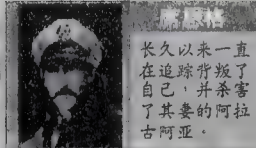 长久以来一直
在追踪背叛了
自己，并杀害
了其妻的阿拉
古阿亚。